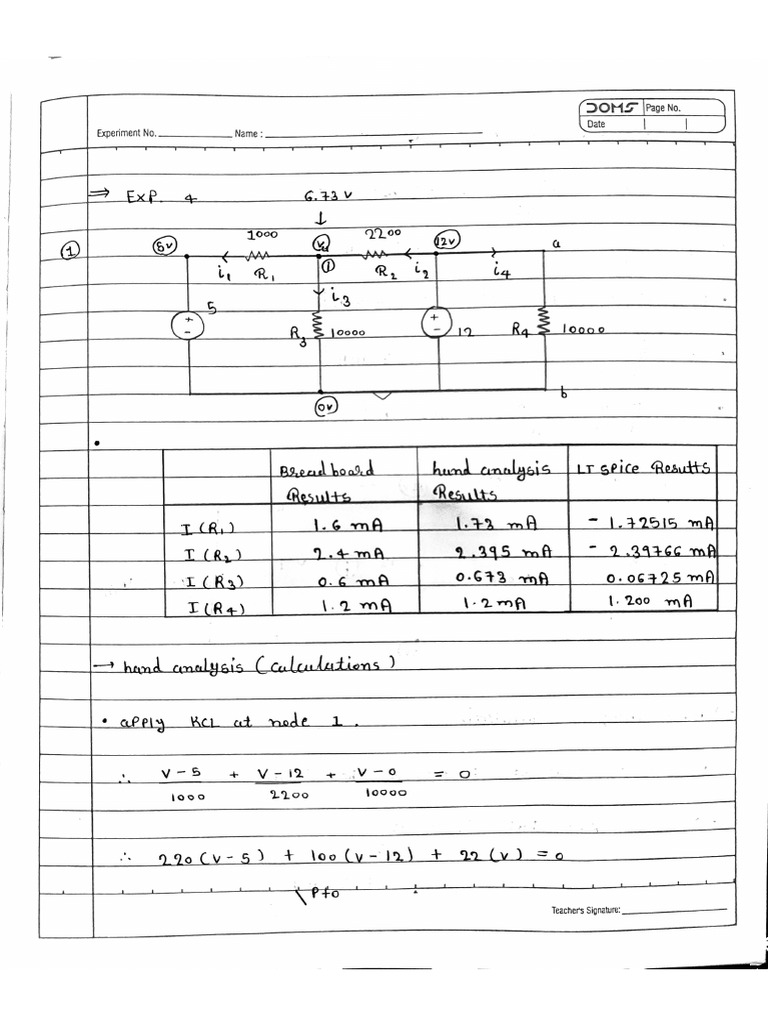 DOMS Page No.
Date
Experiment No. Name :
⇒ Exp. 4 6.73 V
↓
① 5V 1000 Va 2200 12V a
i1 R1 ① R2 i2 i4
5 i3
+ - R3 10000 + - 12 R4 10000
0V b
Breadboard Results hand analysis Results LT spice Results
I (R1) 1.6 mA 1.73 mA - 1.72515 mA
I (R2) 2.4 mA 2.395 mA - 2.39766 mA
I (R3) 0.6 mA 0.673 mA 0.06725 mA
I (R4) 1.2 mA 1.2 mA 1.200 mA
→ hand analysis (calculations)
• apply KCL at node 1.
∴ V-5/1000 + V-12/2200 + V-0/10000 = 0
∴ 220(V-5) + 100(V-12) + 22(V) = 0
PTO
Teacher's Signature: